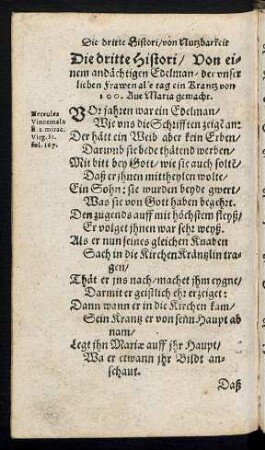 Die dritte Histori/ von Nutzbarkeit
Die dritte Histori/ Von ei-
nem andächtigen Edelman/ der vnser
lieben Frawen alle tag ein Krantz von
100. Aue Maria gemacht.
Hercules
Vincemala
li. 2. mirac.
Virg. B.
fol. 167.
VOr jahren war ein Edelman/
Wie vns die Schrifften zeigt an:
Der hätt ein Weib aber kein Erben/
Darumb sie bede thätend werben
Mit bitt bey Gott/ wie sie auch solt/
Daß er jhnen mittheylen wolte/
Ein Sohn: sie wurden beyde gwert/
Was sie von Gott haben begehrt.
Den zugends auff mit höchstem fleyß/
Er volget jhnen war sehr weyß.
Als er nun seines gleichen Knaben
Sach in die Kirchen Kräntzlin tra-
gen/
Thät er jns nach/ machet jhm eygne/
Darmit er geistlich ehr erzeiget:
Dann wann er in die Kirchen kam/
Sein Krantz er von seim Haupt ab
nam/
Legt jhn Mariæ auff jhr Haupt/
Wa er etwann jhr Bildt an-
schaut.
Daß